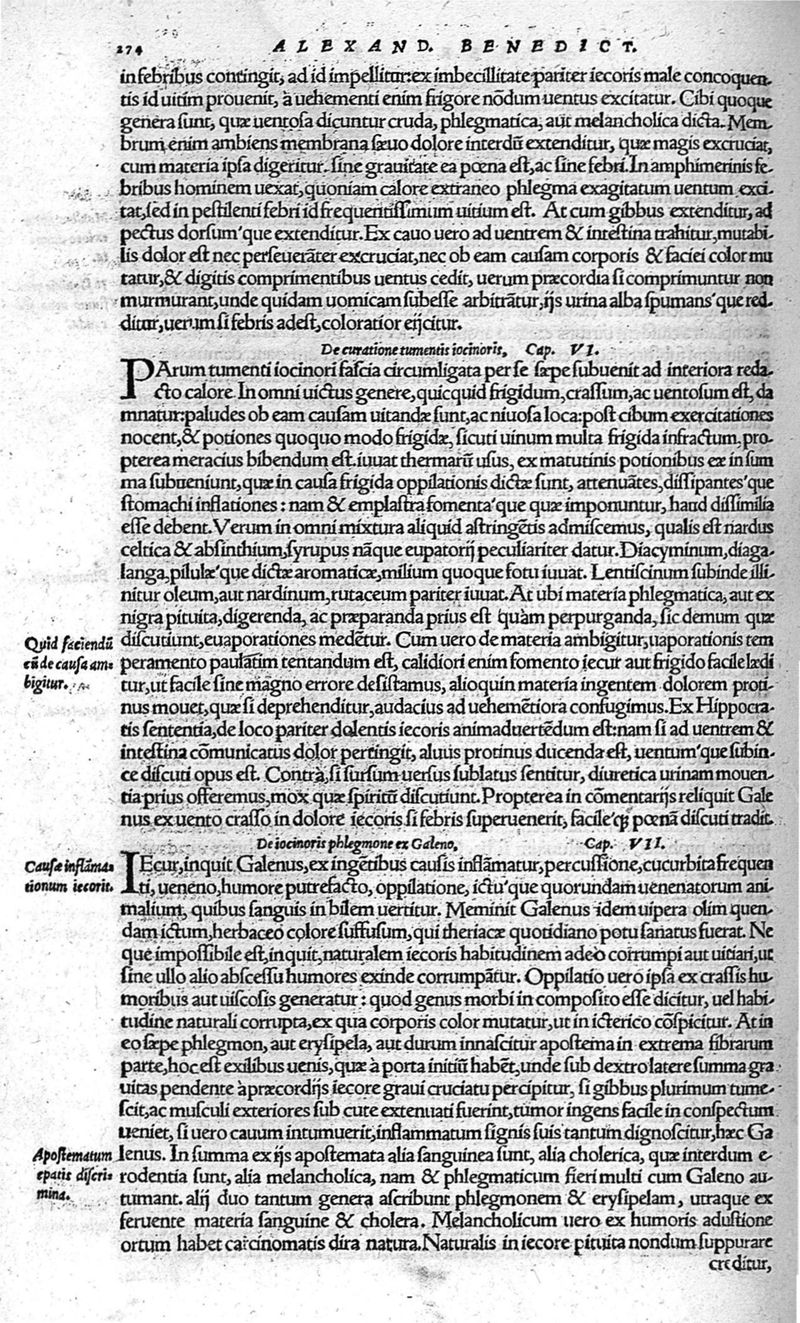 274 ALEXAND. BENEDICT.
in febribus contingit, ad id impellitur: ex imbecillitate pariter iecoris male concoquen-
tis id uitim prouenit, à uehementi enim frigore nõdum uentus excitatur. Cibi quoque
genera ſunt, quæ uentoſa dicuntur cruda, phlegmatica, aut melancholica dicta. Mem-
brum enim ambiens membrana ſæuo dolore interdũ extenditur, quæ magis excruciat,
cum materia ipſa digeritur. ſine grauitate ea pœna eſt, ac ſine febri. In amphimerinis fe-
bribus hominem uexat, quoniam calore extraneo phlegma exagitatum uentum exci-
tat, ſed in peſtilenti febri id frequentiſſimum uitium eſt. At cum gibbus extenditur, ad
pectus dorſum'que extenditur. Ex cauo uero ad uentrem & inteſtina trahitur, mutabi-
lis dolor eſt nec perſeuerãter excruciat, nec ob eam cauſam corporis & faciei color mu
tatur, & digitis comprimentibus uentus cedit, uerum præcordia ſi comprimuntur non
murmurant, unde quidam uomicam ſubeſſe arbitrãtur, ijs urina alba ſpumans'que red-
ditur, uerum ſi febris adeſt, coloratior eijcitur.
De curatione tumentis iocinoris, Cap. VI.
PArum tumenti iocinori faſcia circumligata per ſe ſæpe ſubuenit ad interiora reda-
cto calore. In omni uictus genere, quicquid frigidum, craſſum, ac uentoſum eſt, da
mnatur: paludes ob eam cauſam uitandæ ſunt, ac niuoſa loca: poſt cibum exercitationes
nocent, & potiones quoquo modo frigidæ, ſicuti uinum multa frigida infractum, pro-
pterea meracius bibendum eſt. iuuat thermarũ uſus, ex matutinis potionibus eæ in ſum
ma ſubueniunt, quæ in cauſa frigida oppilationis dictæ ſunt, attenuãtes, diſſipantes'que
ſtomachi inflationes: nam & emplaſtra fomenta'que quæ imponuntur, haud diſſimilia
eſſe debent. Verum in omni mixtura aliquid aſtringẽtis admiſcemus, qualis eſt nardus
celtica & abſinthium, ſyrupus nãque eupatorij peculiariter datur. Diacyminum, diaga-
langa, pilulæ'que dictæ aromaticæ, milium quoque fotu iuuat. Lentiſcinum ſubinde illi-
nitur oleum, aut nardinum, rutaceum pariter iuuat. At ubi materia phlegmatica, aut ex
nigra pituita, digerenda, ac præparanda prius eſt quàm perpurganda, ſic demum quæ
Quid faciendũ
cũ de cauſa am-
bigitur.
diſcutiunt, euaporationes medẽtur. Cum uero de materia ambigitur, uaporationis tem
peramento paulatim tentandum eſt, calidiori enim fomento iecur aut frigido facile lædi
tur, ut facile ſine magno errore deſiſtamus, alioquin materia ingentem dolorem proti-
nus mouet, quæ ſi deprehenditur, audacius ad uehemẽtiora confugimus. Ex Hippocra-
tis ſententia, de loco pariter dolentis iecoris animaduertẽdum eſt: nam ſi ad uentrem &
inteſtina cõmunicatus dolor pertingit, aluus protinus ducenda eſt, uentum'que ſubin-
ce diſcuti opus eſt. Contrà, ſi ſurſum uerſus ſublatus ſentitur, diuretica urinam mouen-
tia prius offeremus, mox quæ ſpiritũ diſcutiunt. Propterea in cõmentarijs reliquit Gale
nus, ex uento craſſo in dolore iecoris ſi febris ſuperuenerit, facile'q; pœnã diſcuti tradit.
De iocinoris phlegmone ex Galeno, Cap. VII.
Cauſæ inflãma-
tionum iecoris.
IEcur, inquit Galenus, ex ingẽtibus cauſis inflãmatur, percuſſione, cucurbita frequen
ti, ueneno, humore putrefacto, oppilatione, ictu'que quorundam uenenatorum ani-
malium, quibus ſanguis in bilem uertitur. Meminit Galenus idem uipera olim quen-
dam ictum, herbaceo colore ſuffuſum, qui theriacæ quotidiano potu ſanatus fuerat. Ne
que impoſſibile eſt, inquit, naturalem iecoris habitudinem adeò corrumpi aut uitiari, ut
ſine ullo alio abſceſſu humores exinde corrumpãtur. Oppilatio uero ipſa ex craſſis hu-
moribus aut uiſcoſis generatur: quod genus morbi in compoſito eſſe dicitur, uel habi-
tudine naturali corrupta, ex qua corporis color mutatur, ut in icterico cõſpicitur. At in
eo ſæpe phlegmon, aut eryſipela, aut durum innaſcitur apoſtema in extrema fibrarum
parte, hoc eſt exilibus uenis, quæ à porta initiũ habẽt, unde ſub dextro latere ſumma gra
uitas pendente à præcordijs iecore graui cruciatu percipitur, ſi gibbus plurimum tume-
ſcit, ac muſculi exteriores ſub cute extenuati fuerint, tumor ingens facile in conſpectum
ueniet, ſi uero cauum intumuerit, inflammatum ſignis ſuis tantum dignoſcitur, hæc Ga
Apoſtematum
epatis diſcri-
mina.
lenus. In ſumma ex ijs apoſtemata alia ſanguinea ſunt, alia cholerica, quæ interdum e-
rodentia ſunt, alia melancholica, nam & phlegmaticum fieri multi cum Galeno au-
tumant. alij duo tantum genera aſcribunt phlegmonem & eryſipelam, utraque ex
feruente materia ſanguine & cholera. Melancholicum uero ex humoris aduſtione
ortum habet carcinomatis dira natura. Naturalis in iecore pituita nondum ſuppurare
creditur,